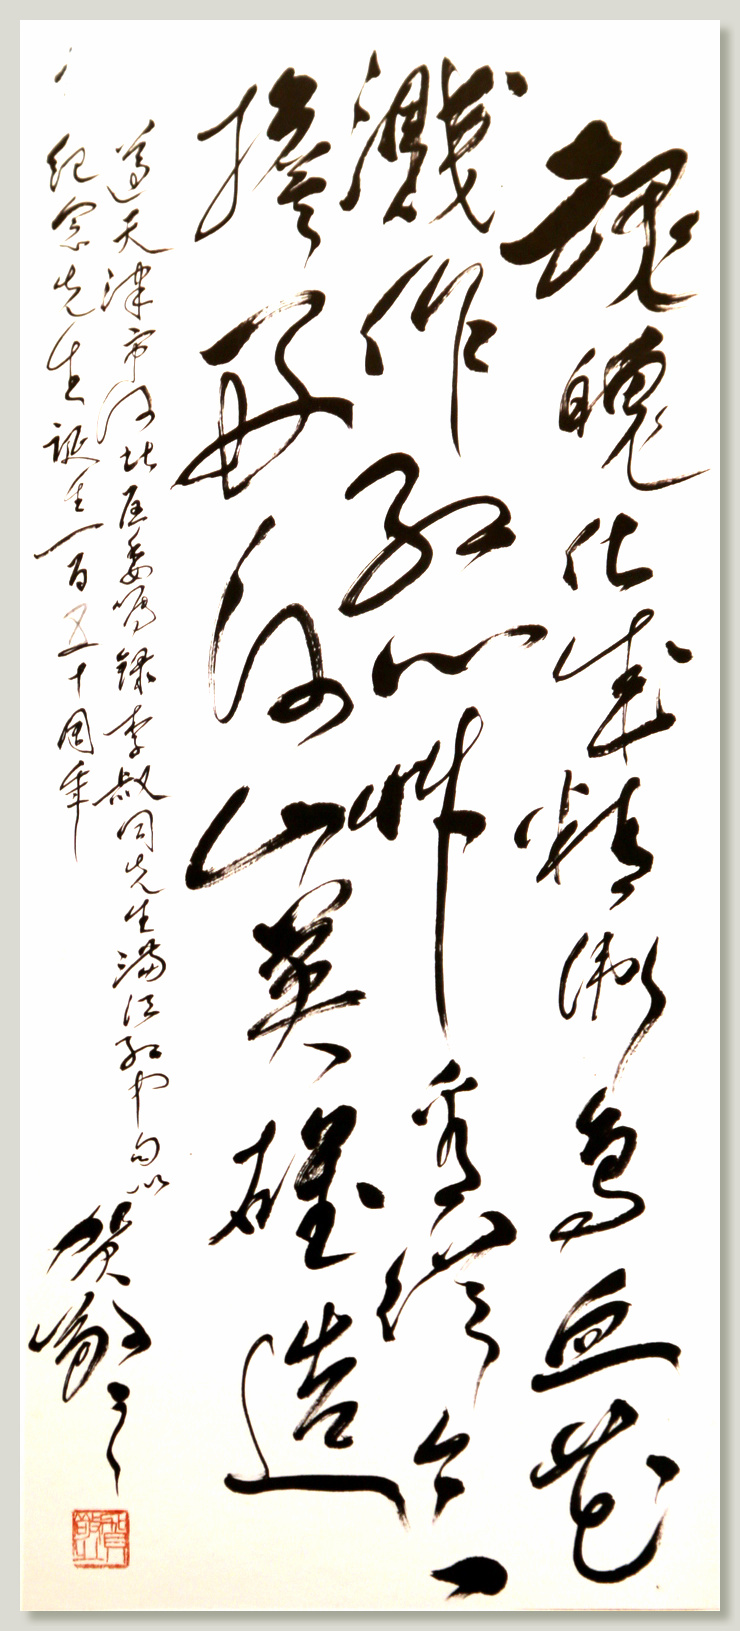 魂魄化成精衛鳥血花
濺作红心艸看從今一
擔好河山英雄造
遵天津市河北区委嘱録李叔同先生满江红中句以
纪念先生诞生一百五十周年
贺敬之